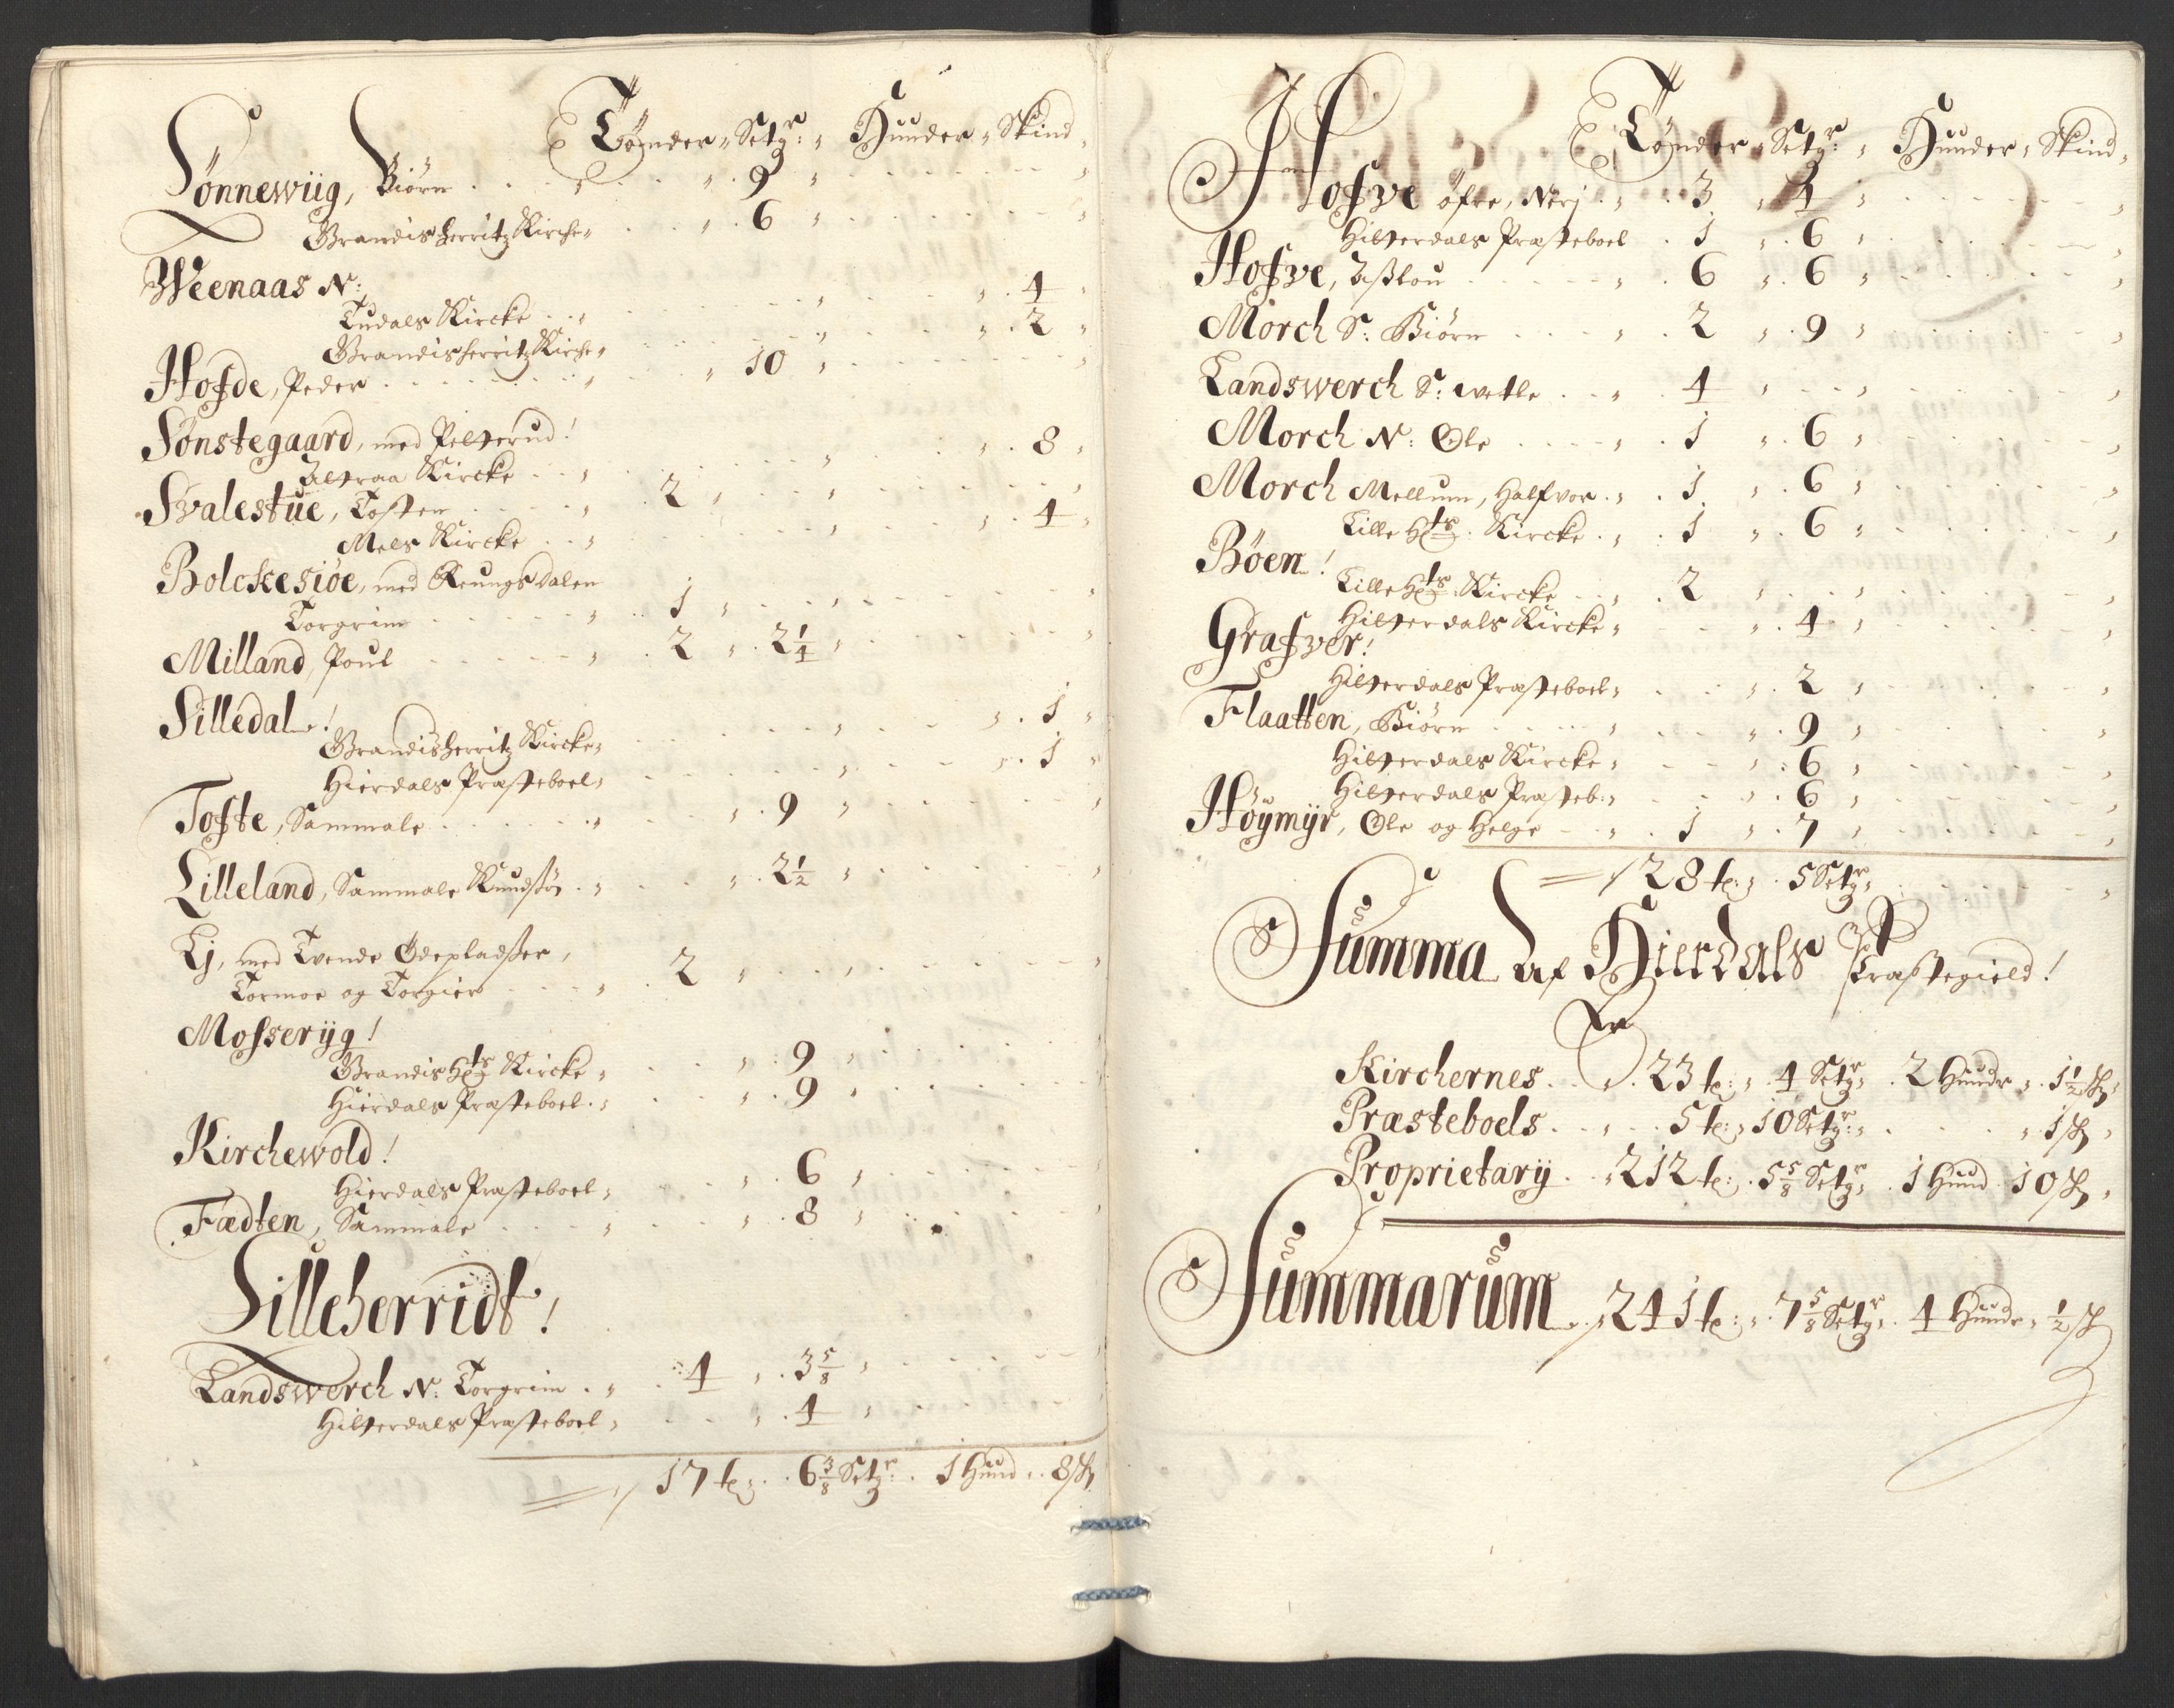 Tønder „ Setgr: „ Huuder „ Skind „
Lönnewiig, Biörn „ 9 „
Brandisherritz Kirche „ 6 „
Weenaas N:
Tudals Kircke „ 4 „
Brandisherritz Kirche „ 2 „
Hofde, Peder „ 10 „
Sönstegaard, med Pelterud!
Kircke „ 8 „
Svalestüe, Tosten „ 2 „
Mels Kircke „ 4 „
Bolckesiöe, med Reungsdalen
Torgrim „ 1 „
Milland, Poul „ 2 „ 2 1/4 „
Silledal!
Brandisherritz Kircke „ 1 „
Hierdals Præsteboel „ 1 „
Tofte, Sammale „ 9 „
Lilleland, Sammale Knudsøn „ 2 1/2 „
Lj, med Tvende Ödepladsser,
Tormoe og Torgier „ 2 „
Mosseryg!
Brandis Htz Kircke „ 9 „
Hierdals Præsteboel „ 9 „
Kirchewold!
Hierdals Præsteboel „ 6 „
Fædten, Sammale „ 8 „
Lilleherridt!
Landswerch N: Torgrim „ 4 „ 3 5/8 „
Hitterdals Præsteboel „ 4 „
17 t: 6 3/8 Setgr: 1 Huud „ 8 sk
Tønder „ Setgr: „ Huuder „ Skind „
Hofve öfre, Nerj „ 3 „ 4 „
Hitterdals Præsteboel „ 1 „ 6 „
Hofve, Aslou „ 6 „ 6 „
Morch S: Biörn „ 2 „ 9 „
Landswerch S: wetle „ 4 „
Morch N: Ole „ 1 „ 6 „
Morch Mellum, Halfvor „ 1 „ 6 „
Lille Htz: Kircke „ 1 „ 6 „
Böen!
Lille Htz: Kircke „ 2 „
Hitterdals Kircke „ 4 „
Grafver!
Hitterdals Præsteboel „ 2 „
Flaatten, Biörn „ 9 „
Hitterdals Kircke „ 6 „
Hitterdals Præsteb: „ 6 „
Höymyr, Ole og Helge „ 1 „ 7 „
28 t: „ 5 Setgr „
Summa Af Hierdals Præstegield!
Kirchernes „ 23 t: „ 4 Setgr „ 2 Huudr „ 1 1/2 sk „
Præsteboels „ 5 t: „ 10 Setgr: „ „ 1 sk „
Proprietarij „ 212 t: 5 5/8 Setgr „ 1 Huud 10 sk „
Summarum 241 t: „ 7 5/8 Setgr „ 4 Huudr „ 1/2 sk